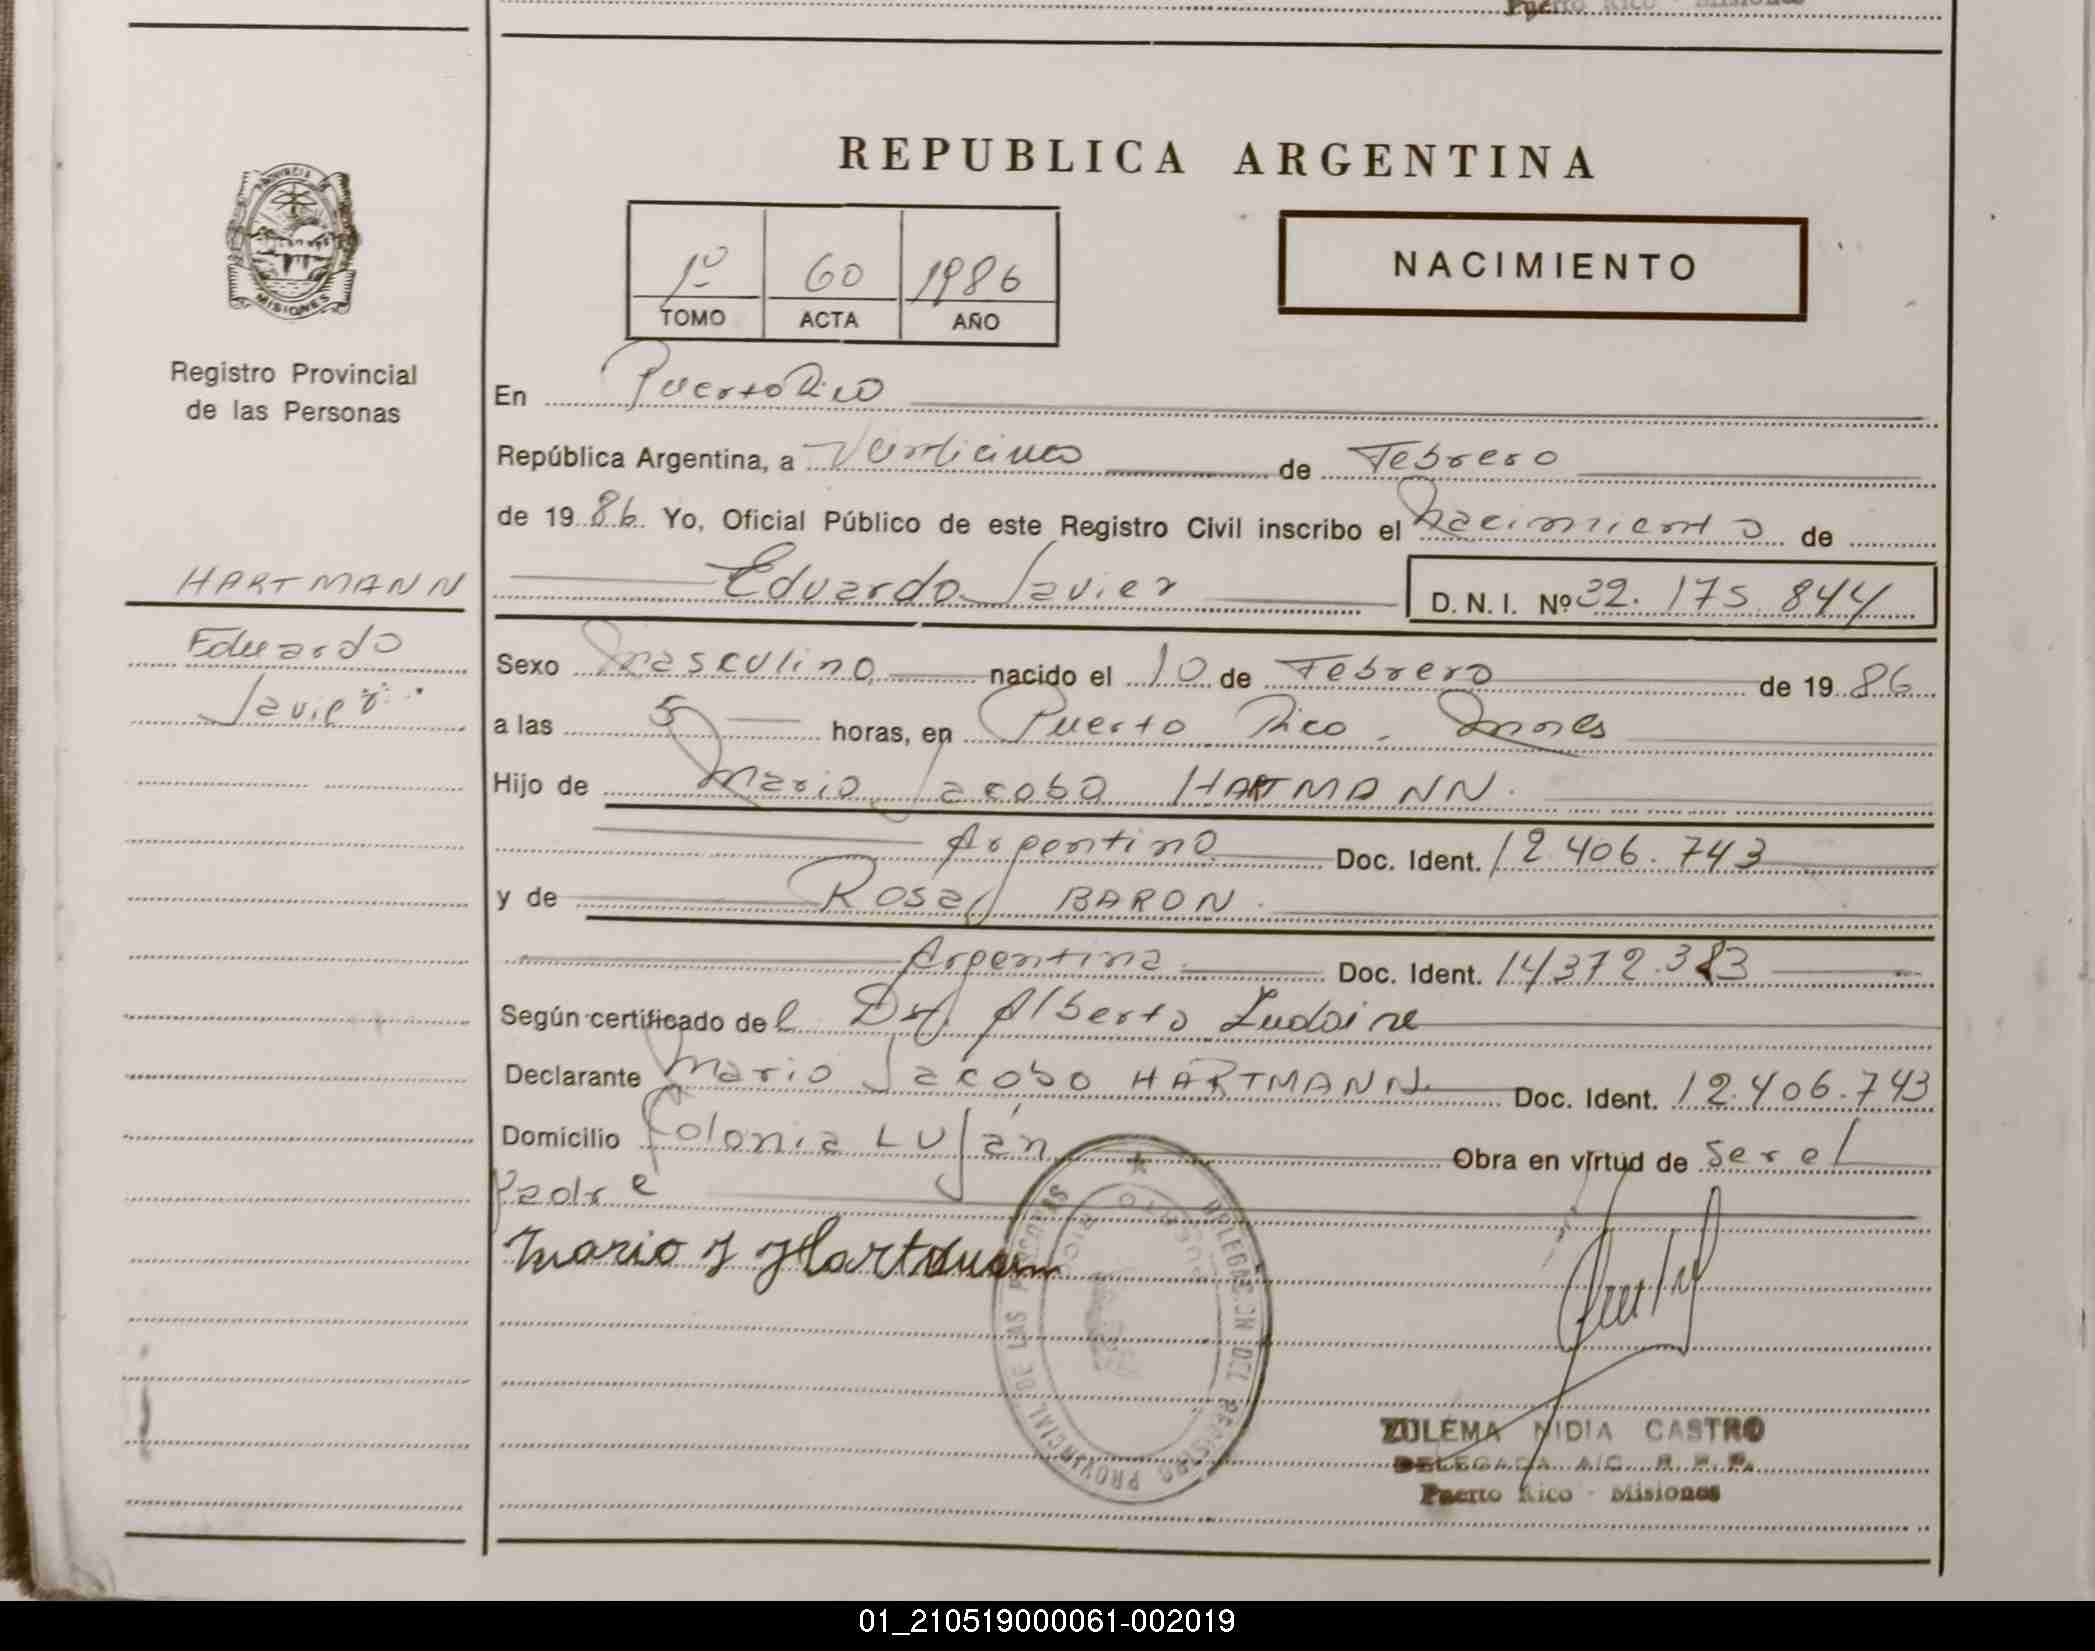 Puerto Rico - Misiones
REPUBLICA ARGENTINA
PROVINCIA DE
MISIONES
1º 60 1986
TOMO ACTA AÑO
NACIMIENTO
Registro Provincial
de las Personas
En Puerto Rico
República Argentina, a Veinticinco de Febrero
de 1986 Yo, Oficial Público de este Registro Civil inscribo el Nacimiento de
HARTMANN
Eduardo
Javier
Eduardo Javier D. N. I. Nº 32.175.844
Sexo Masculino nacido el 10 de Febrero de 1986
a las 5 horas, en Puerto Rico - Mnes
Hijo de Mario Jacobo HARTMANN.
Argentino Doc. Ident. 12.406.743
y de Rosa BARON.
Argentina Doc. Ident. 14.372.383
Según certificado del Dr. Alberto
Declarante Mario Jacobo HARTMANN. Doc. Ident. 12.406.743
Domicilio Colonia Luján Obra en virtud de ser el
Padre
Mario J Hartmann
DELEGACION DEL REGISTRO PROVINCIAL DE LAS PERSONAS
PUERTO RICO
ZULEMA NIDIA CASTRO
DELEGADA A/C. R. P. P.
Puerto Rico - Misiones
01_210519000061-002019